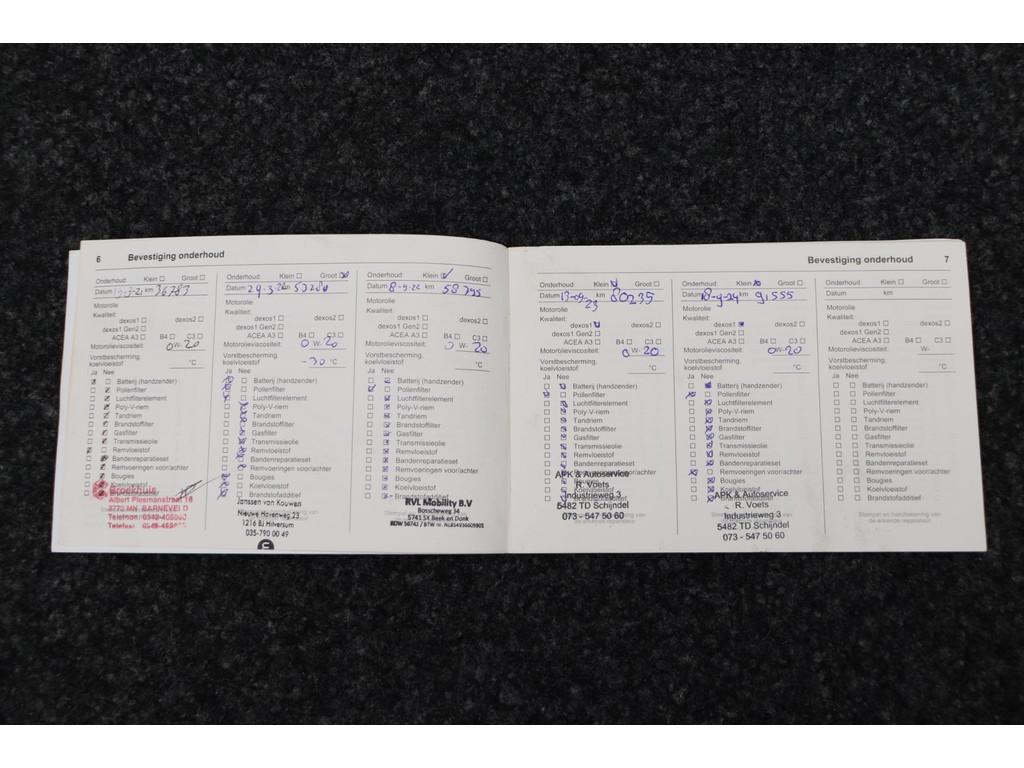 6 Bevestiging onderhoud
Onderhoud: Klein Groot
Datum km 36783
Motorolie
Kwaliteit:
dexos1 dexos2
dexos1 Gen2
ACEA A3 B4 C3
Motorolieviscositeit: 0W-20
Vorstbescherming,
koelvloeistof °C
Ja Nee
Batterij (handzender)
Pollenfilter
Luchtfilterelement
Poly-V-riem
Tandriem
Brandstoffilter
Gasfilter
Transmissieolie
Remvloeistof
Bandenreparatieset
Remvoeringen voor/achter
Bougies
Koelvloeistof
Broekhuis
Albert Plesmanstraat 16
3772 MN BARNEVELD
Telefoon:
Telefax:
Onderhoud: Klein Groot
Datum 29-3-22 km 53280
Motorolie
Kwaliteit:
dexos1 dexos2
dexos1 Gen2
ACEA A3 B4 C3
Motorolieviscositeit: 0W-20
Vorstbescherming,
koelvloeistof -30 °C
Ja Nee
Batterij (handzender)
Pollenfilter
Luchtfilterelement
Poly-V-riem
Tandriem
Brandstoffilter
Gasfilter
Transmissieolie
Remvloeistof
Bandenreparatieset
Remvoeringen voor/achter
Bougies
Koelvloeistof
Brandstofadditief
Janssen van Kouwen
Nieuwe Havenweg 23
1216 BJ Hilversum
035-790 00 49
Onderhoud: Klein Groot
Datum 8-9-22 km 58395
Motorolie
Kwaliteit:
dexos1 dexos2
dexos1 Gen2
ACEA A3 B4 C3
Motorolieviscositeit: 0W-20
Vorstbescherming,
koelvloeistof °C
Ja Nee
Batterij (handzender)
Pollenfilter
Luchtfilterelement
Poly-V-riem
Tandriem
Brandstoffilter
Gasfilter
Transmissieolie
Remvloeistof
Bandenreparatieset
Remvoeringen voor/achter
Bougies
Koelvloeistof
Brandstofadditief
RVL Mobility B.V
Bosscheweg 34
5741 SX Beek en Donk
Bevestiging onderhoud 7
Onderhoud: Klein Groot
Datum 13-09-23 km 80235
Motorolie
Kwaliteit:
dexos1 dexos2
dexos1 Gen2
ACEA A3 B4 C3
Motorolieviscositeit: 0W-20
Vorstbescherming,
koelvloeistof °C
Ja Nee
Batterij (handzender)
Pollenfilter
Luchtfilterelement
Poly-V-riem
Tandriem
Brandstoffilter
Gasfilter
Transmissieolie
Remvloeistof
Bandenreparatieset
Remvoeringen voor/achter
Bougies
Koelvloeistof
Brandstofadditief
APK & Autoservice
R. Voets
Industrieweg 3
5482 TD Schijndel
073 - 547 50 60
Onderhoud: Klein Groot
Datum 18-9-24 km 91555
Motorolie
Kwaliteit:
dexos1 dexos2
dexos1 Gen2
ACEA A3 B4 C3
Motorolieviscositeit: 0W-20
Vorstbescherming,
koelvloeistof °C
Ja Nee
Batterij (handzender)
Pollenfilter
Luchtfilterelement
Poly-V-riem
Tandriem
Brandstoffilter
Gasfilter
Transmissieolie
Remvloeistof
Bandenreparatieset
Remvoeringen voor/achter
Bougies
Koelvloeistof
APK & Autoservice
R. Voets
Industrieweg 3
5482 TD Schijndel
073 - 547 50 60
Onderhoud: Klein Groot
Datum km
Motorolie
Kwaliteit:
dexos1 dexos2
dexos1 Gen2
ACEA A3 B4 C3
Motorolieviscositeit: W-
Vorstbescherming,
koelvloeistof °C
Ja Nee
Batterij (handzender)
Pollenfilter
Luchtfilterelement
Poly-V-riem
Tandriem
Brandstoffilter
Gasfilter
Transmissieolie
Remvloeistof
Bandenreparatieset
Remvoeringen voor/achter
Bougies
Koelvloeistof
Brandstofadditief
Stempel en handtekening van
de erkende reparateur